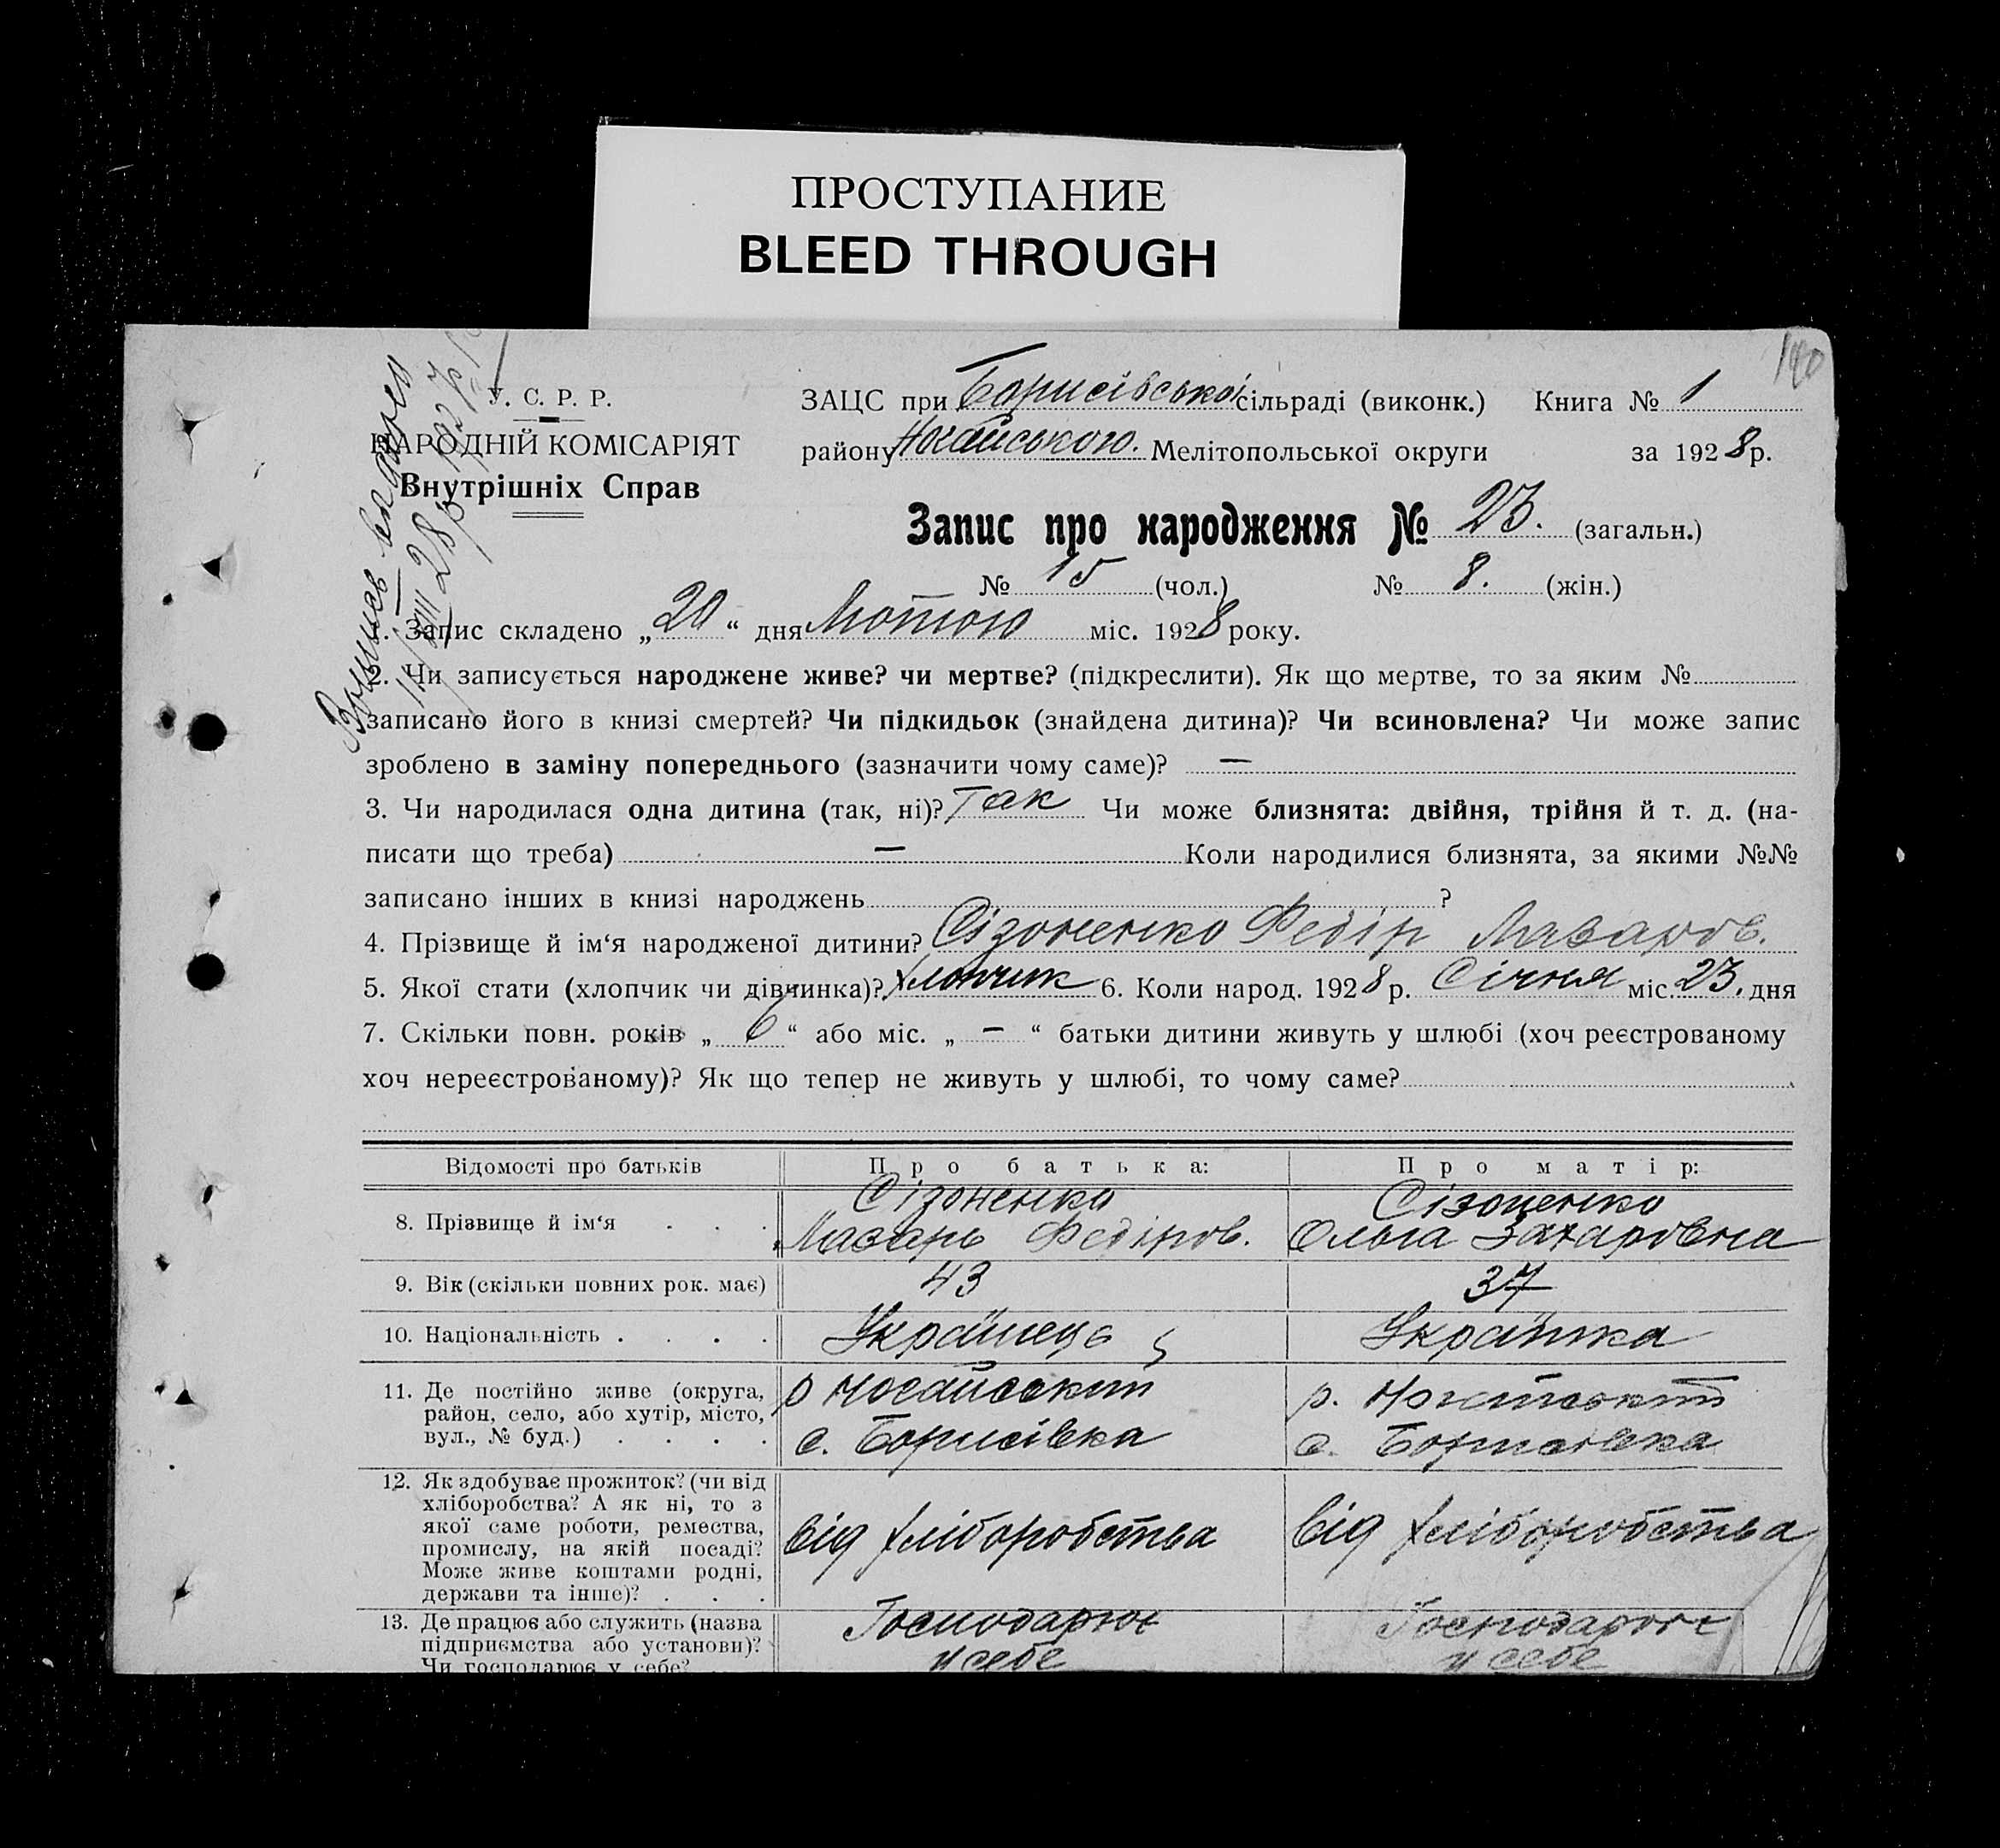 ПРОСТУПАНИЕ
BLEED THROUGH
140
У. С. Р. Р.
НАРОДНІЙ КОМІСАРІЯТ
Внутрішніх Справ
ЗАЦС при Борисівської сільраді (виконк.) Книга № 1
району Ногайського. Мелітопольської округи за 1928 р.
Запис про народження № 23. (загальн.)
№ 15 (чол.) № 8. (жін.)
1. Запис складено „20“ дня Лютого міс. 1928 року.
2. Чи записується народжене живе? чи мертве? (підкреслити). Як що мертве, то за яким №
записано його в книзі смертей? Чи підкидьок (знайдена дитина)? Чи всиновлена? Чи може запис
зроблено в заміну попереднього (зазначити чому саме)? —
3. Чи народилася одна дитина (так, ні)? Так Чи може близнята: двійня, трійня й т. д. (на-
писати що треба) — Коли народилися близнята, за якими №№
записано інших в книзі народжень ?
4. Прізвище й ім‘я народженої дитини? Сізоненко Федір Лазаров.
5. Якої стати (хлопчик чи дівчинка)? Хлопчик 6. Коли народ. 1928 р. Січня міс. 23. дня
7. Скільки повн. років „6“ або міс. „—“ батьки дитини живуть у шлюбі (хоч реєстрованому
хоч нереєстрованому)? Як що тепер не живуть у шлюбі, то чому саме?
Відомості про батьків Про батька: Про матір:
8. Прізвище й ім‘я . . . Сізоненко Лазарь Федіров. Сізоненко Ольга Захаровна
9. Вік (скільки повних рок. має) 43 37
10. Національність . . . . Українець Українка
11. Де постійно живе (округа, р Ногайський р. Ногайський
район, село, або хутір, місто, с. Борисівка с. Борисівка
вул., № буд.) . . . .
12. Як здобуває прожиток? (чи від
хліборобства? А як ні, то з
якої саме роботи, ремества, від хліборобства від хліборобства
промислу, на якій посаді?
Може живе коштами родні,
держави та інше)? . . .
13. Де працює або служить (назва Господарює Господарює
підприємства або установи)? у себе у себе
Чи господарює у себе?